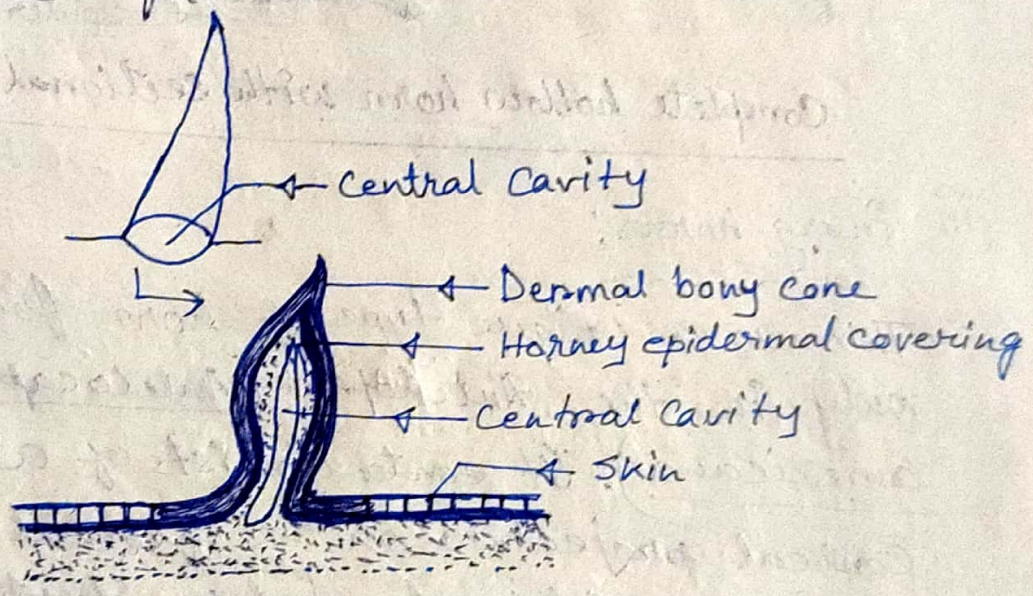 Central Cavity
Dermal bony cone
Horney epidermal covering
Central Cavity
Skin